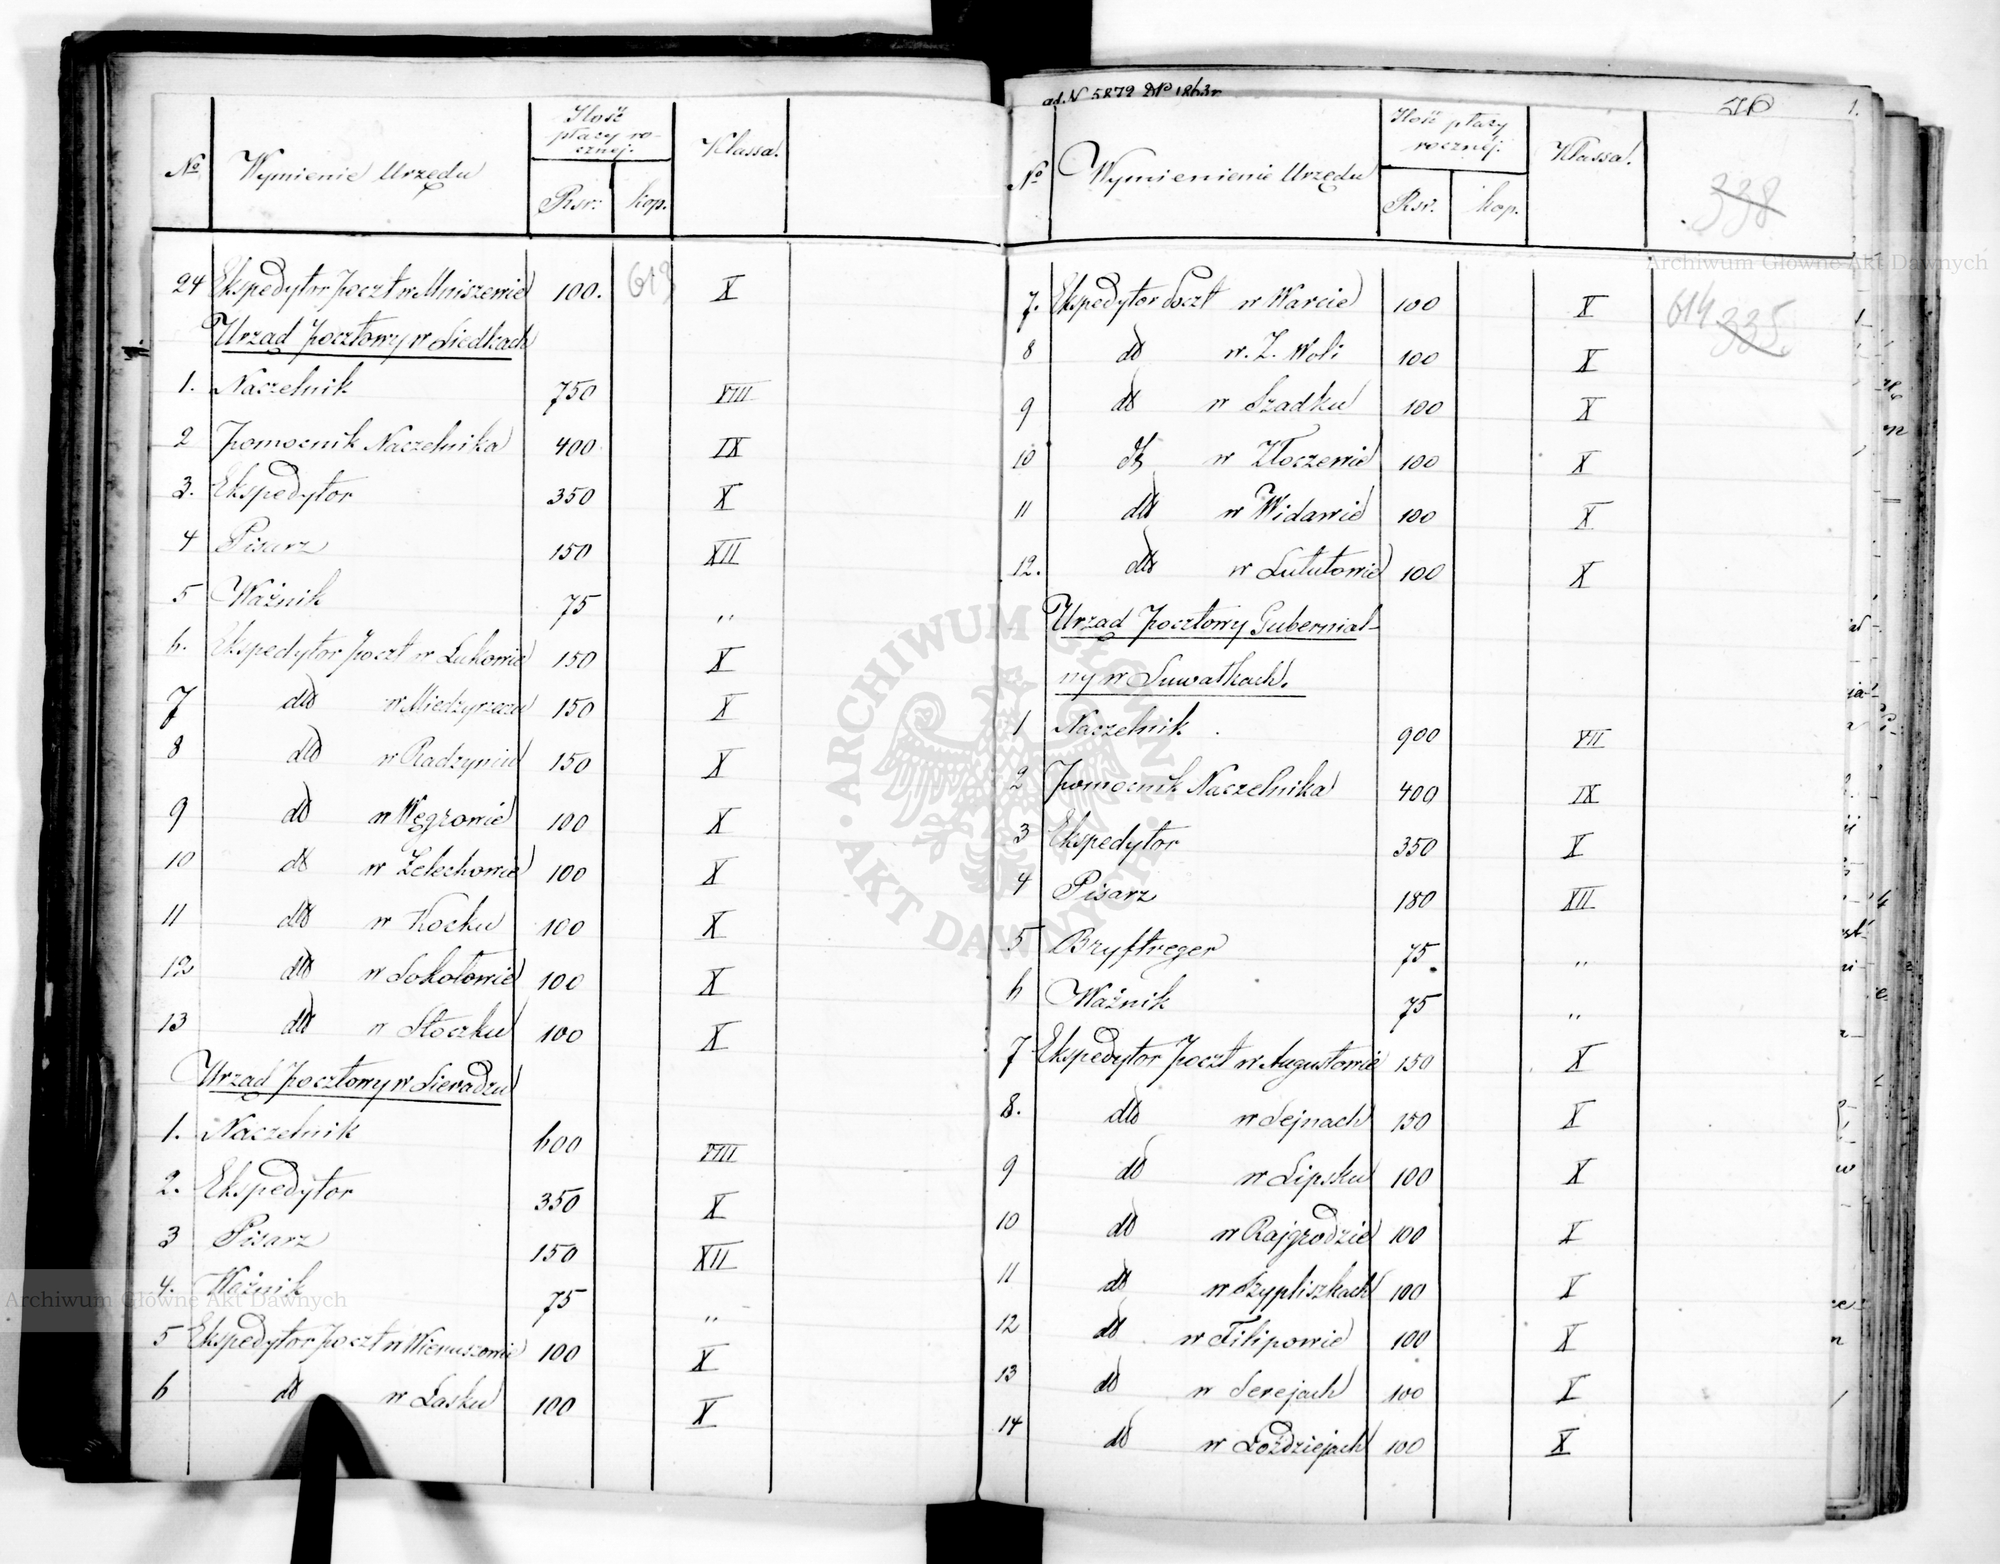 № Wymienienie Urzędu Ilość płacy rocznej. Rsr: kop. Klassa.
613
24 Ekspedytor Poczt w Mniszewie 100. X
Urząd Pocztowy w Siedlcach
1. Naczelnik 750 VIII
2 Pomocnik Naczelnika 400 IX
3. Ekspedytor 350 X
4 Pisarz 150 XII
5 Woźnik 75 „
6. Ekspedytor Poczt w Łukowie 150 X
7 dto w Miedzyrzecu 150 X
8 dto w Radzyniu 150 X
9 do w Węgrowie 100 X
10 do w Żelechowie 100 X
11 dto w Kocku 100 X
12 dto w Sokołowie 100 X
13 dto w Stoczku 100 X
Urząd Pocztowy w Sieradzu
1. Naczelnik 600 VIII
2. Ekspedytor 350 X
3 Pisarz 150 XII
4. Woźnik 75 „
5 Ekspedytor Poczt w Wieruszowie 100 X
6 do w Łasku 100 X
ad. N 5872 DP 1863 r
1.
№ Wymienienie Urzędu Ilość płacy rocznéj. Rsr. kop. Klassa.
338
614 335
7. Ekspedytor Poczt w Warcie 100 X
8 do w. Z. Woli 100 X
9 do w Szadku 100 X
10 do w Złoczewie 100 X
11 dto w Widawie 100 X
12. dto w Lututowie 100 X
Urząd Pocztowy Gubernial-
ny w Suwałkach.
1 Naczelnik 900 VII
2 Pomocnik Naczelnika 400 IX
3 Ekspedytor 350 X
4 Pisarz 180 XII
5 Bryftreger 75. „
6 Woźnik 75 „
7 Ekspedytor Poczt w Augustowie 150 X
8. dto w Sejnach 150 X
9 do w Lipsku 100 X
10 do w Rajgrodzie 100 X
11 do w Szypliszkach 100 X
12 do w Filipowie 100 X
13 do w Serejach 100 X
14 do w Łoździejach 100 X
Archiwum Główne Akt Dawnych
Archiwum Główne Akt Dawnych
ARCHIWUM GŁÓWNE AKT DAWNYCH